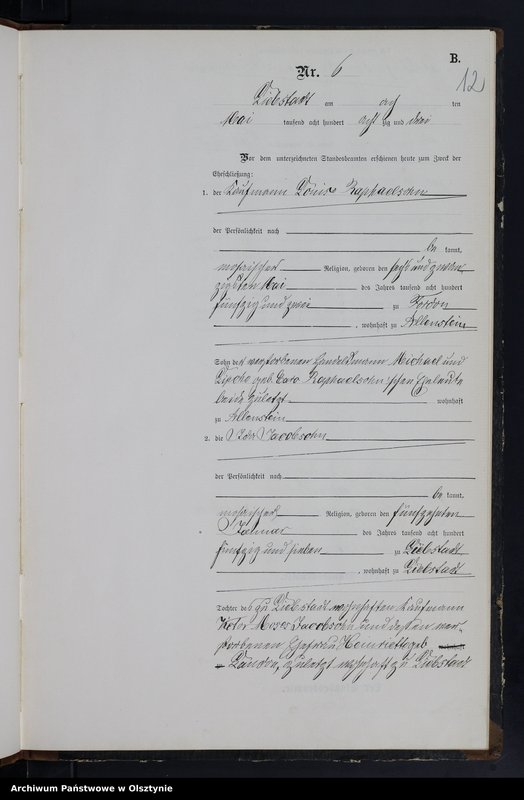 B.
Nr. 6
12
Liebstadt am acht ten
Mai tausend acht hundert achtzig und drei
Vor dem unterzeichneten Standesbeamten erschienen heute zum Zweck der
Eheschließung:
1. der Kaufmann Louis Raphaelsohn
der Persönlichkeit nach
be kannt,
mosaischer Religion, geboren den sechs und zwan-
zigsten Mai des Jahres tausend acht hundert
fünfzig und zwei zu Fordon
, wohnhaft zu Allenstein
Sohn der verstorbenen Handelsmann Michael und
geb. Caro Raphaelsohn'schen Eheleute
beide zuletzt wohnhaft
zu Allenstein
2. die Ida Jacobsohn
der Persönlichkeit nach
be kannt,
mosaischer Religion, geboren den fünfzehnten
Januar des Jahres tausend acht hundert
fünfzig und sieben zu Liebstadt
, wohnhaft zu Liebstadt
Tochter des zu Liebstadt wohnhaften Kaufmann
Moses Jacobsohn und dessen ver-
storbenen Ehefrau Henriette geb.
, zuletzt wohnhaft zu Liebstadt
Archiwum Państwowe w Olsztynie